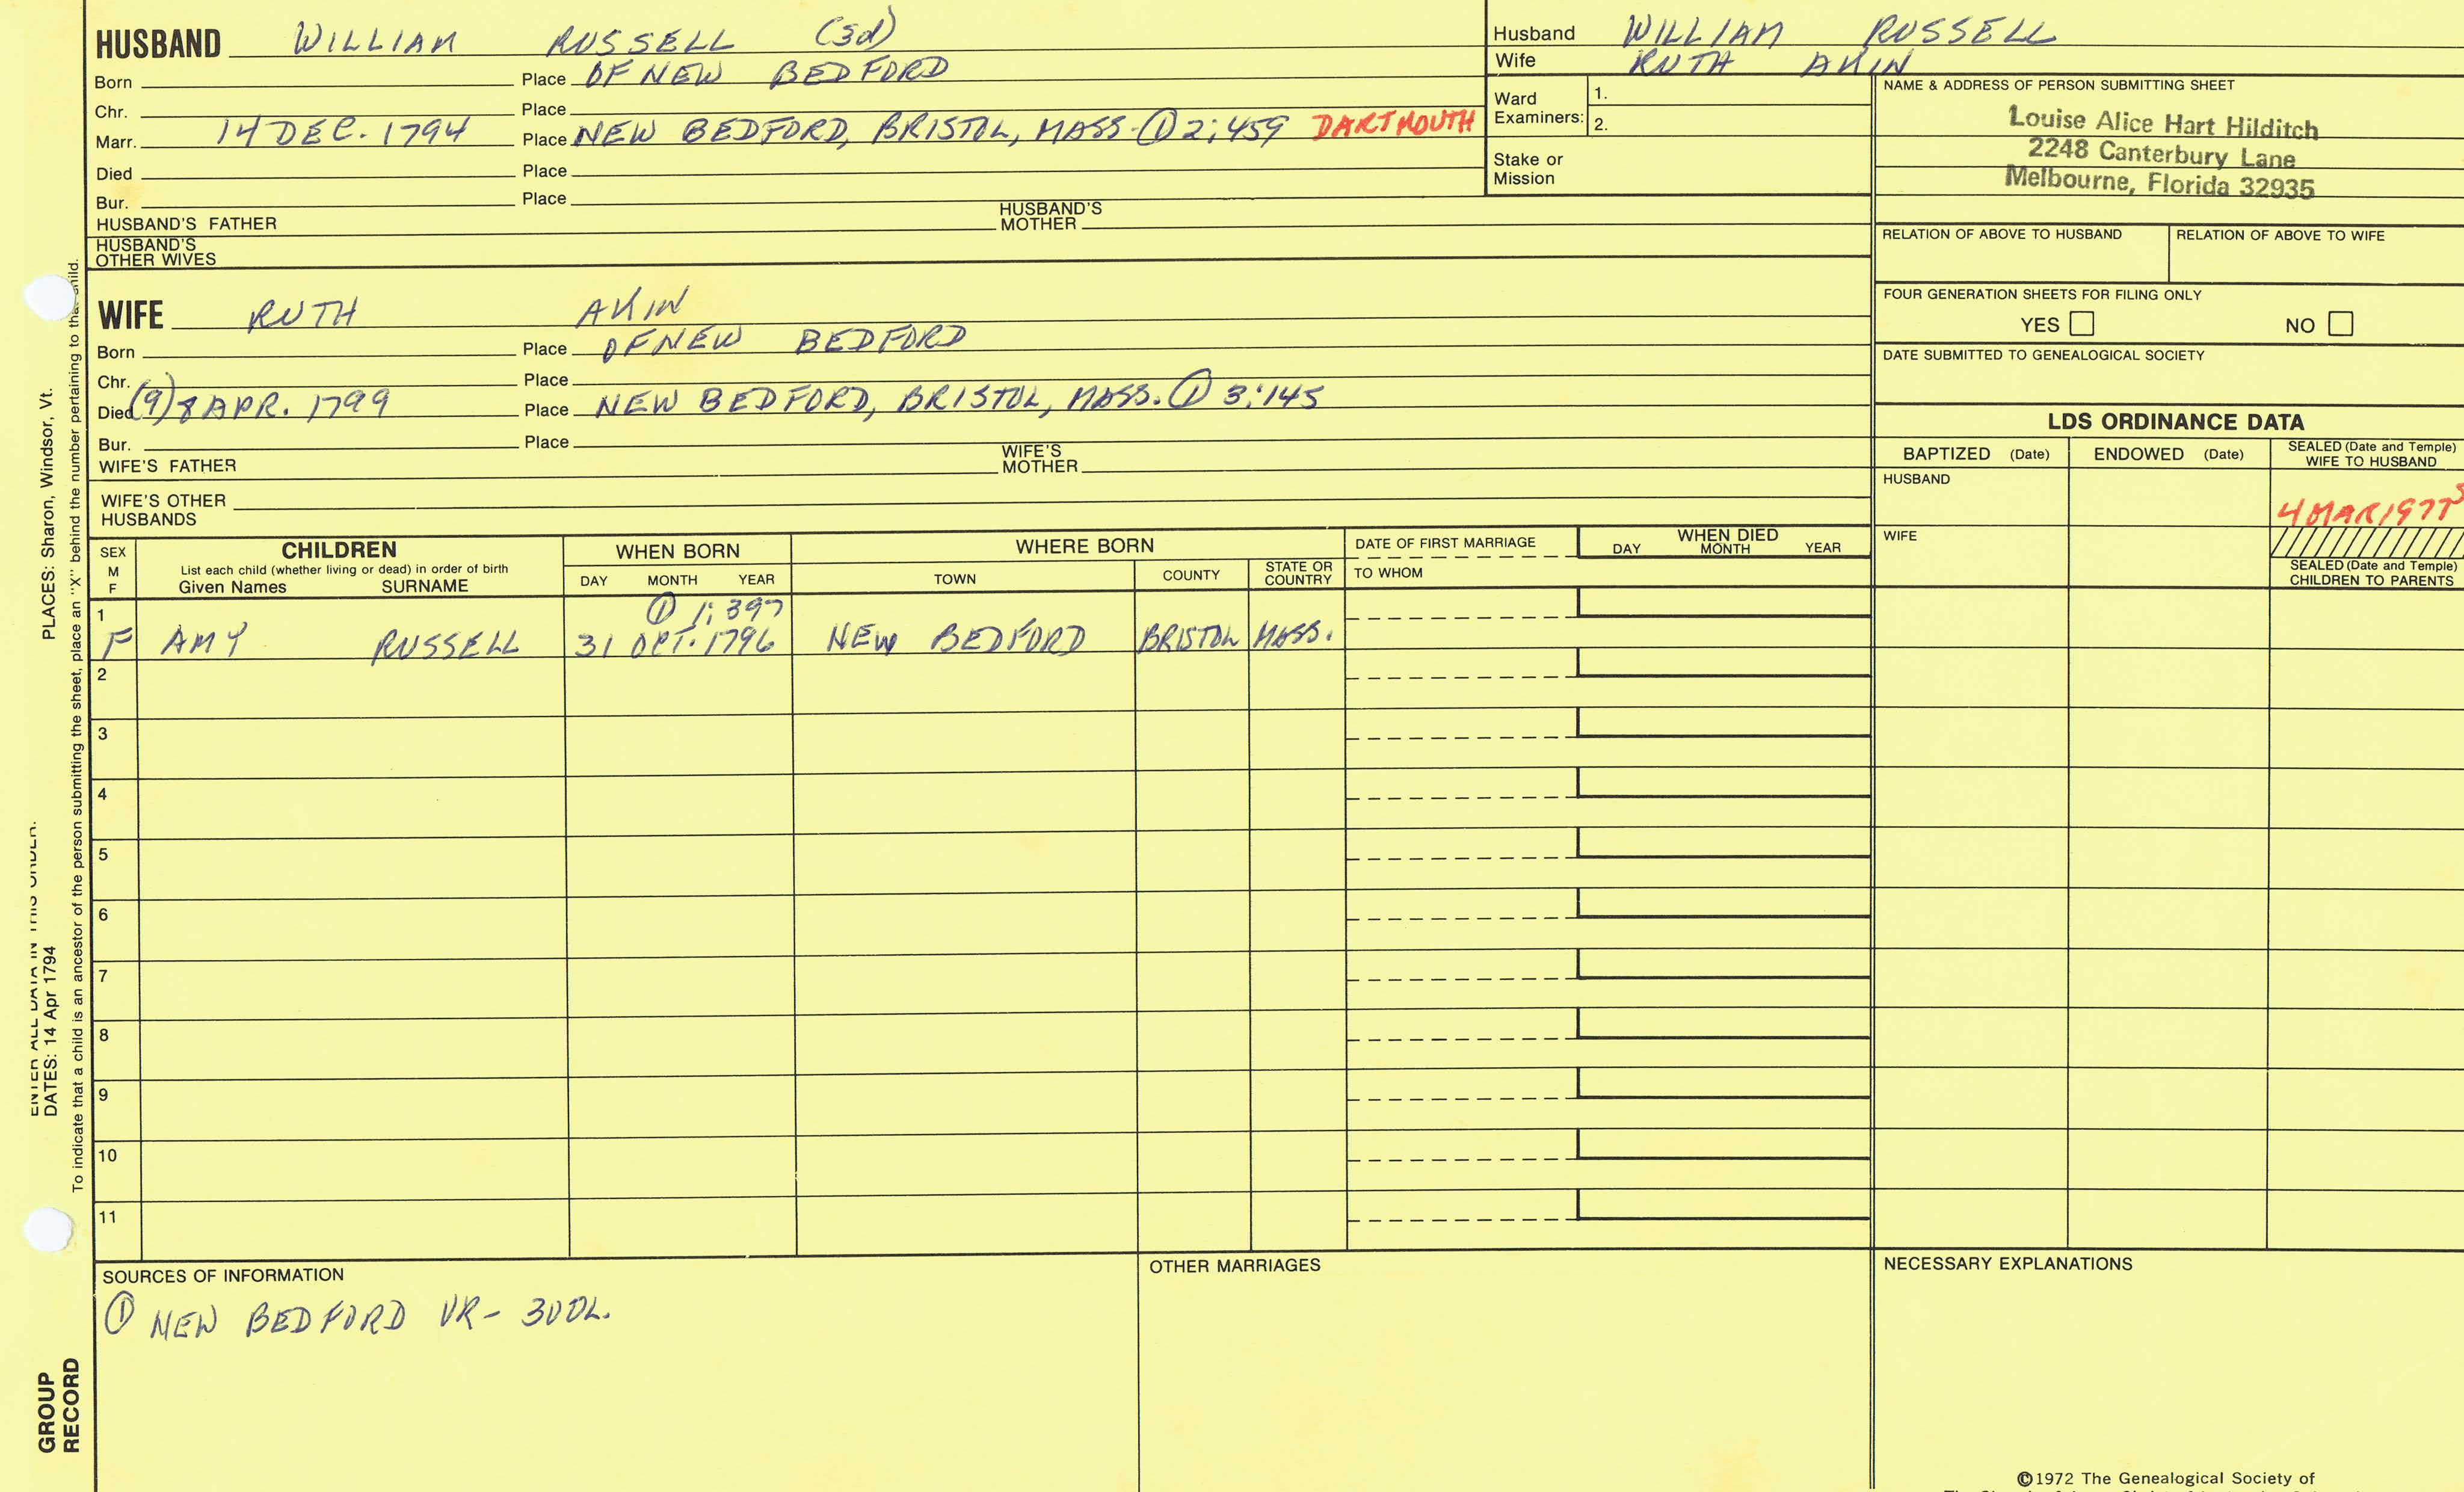 HUSBAND WILLIAM RUSSELL (3d)
Born Place OF NEW BEDFORD
Chr. Place
Marr. 14 DEC. 1794 Place NEW BEDFORD, BRISTOL, MASS. ① 2:459 DARTMOUTH
Died Place
Bur. Place
HUSBAND'S FATHER HUSBAND'S MOTHER
HUSBAND'S OTHER WIVES
Husband WILLIAM RUSSELL
Wife RUTH AKIN
Ward Examiners: 1.
2.
Stake or Mission
NAME & ADDRESS OF PERSON SUBMITTING SHEET
Louise Alice Hart Hilditch
2248 Canterbury Lane
Melbourne, Florida 32935
RELATION OF ABOVE TO HUSBAND RELATION OF ABOVE TO WIFE
FOUR GENERATION SHEETS FOR FILING ONLY
YES NO
DATE SUBMITTED TO GENEALOGICAL SOCIETY
WIFE RUTH AKIN
Born Place OF NEW BEDFORD
Chr. Place
Died (9) 8 APR. 1799 Place NEW BEDFORD, BRISTOL, MASS. ① 3:145
Bur. Place
WIFE'S FATHER WIFE'S MOTHER
WIFE'S OTHER HUSBANDS
LDS ORDINANCE DATA
BAPTIZED (Date) ENDOWED (Date) SEALED (Date and Temple) WIFE TO HUSBAND
HUSBAND
4 MAR 1977
WIFE
SEALED (Date and Temple) CHILDREN TO PARENTS
SEX M F
CHILDREN
List each child (whether living or dead) in order of birth
Given Names SURNAME
WHEN BORN
DAY MONTH YEAR
WHERE BORN
TOWN COUNTY STATE OR COUNTRY
DATE OF FIRST MARRIAGE
TO WHOM
WHEN DIED
DAY MONTH YEAR
1 ① 1:397
F AMY RUSSELL 31 OCT. 1796 NEW BEDFORD BRISTOL MASS.
2
3
4
5
6
7
8
9
10
11
SOURCES OF INFORMATION
① NEW BEDFORD VR- 3VOL.
OTHER MARRIAGES
NECESSARY EXPLANATIONS
©1972 The Genealogical Society of
ENTER ALL DATA IN THIS ORDER.
DATES: 14 Apr 1794 PLACES: Sharon, Windsor, Vt.
To indicate that a child is an ancestor of the person submitting the sheet, place an "X" behind the number pertaining to that child.
GROUP
RECORD